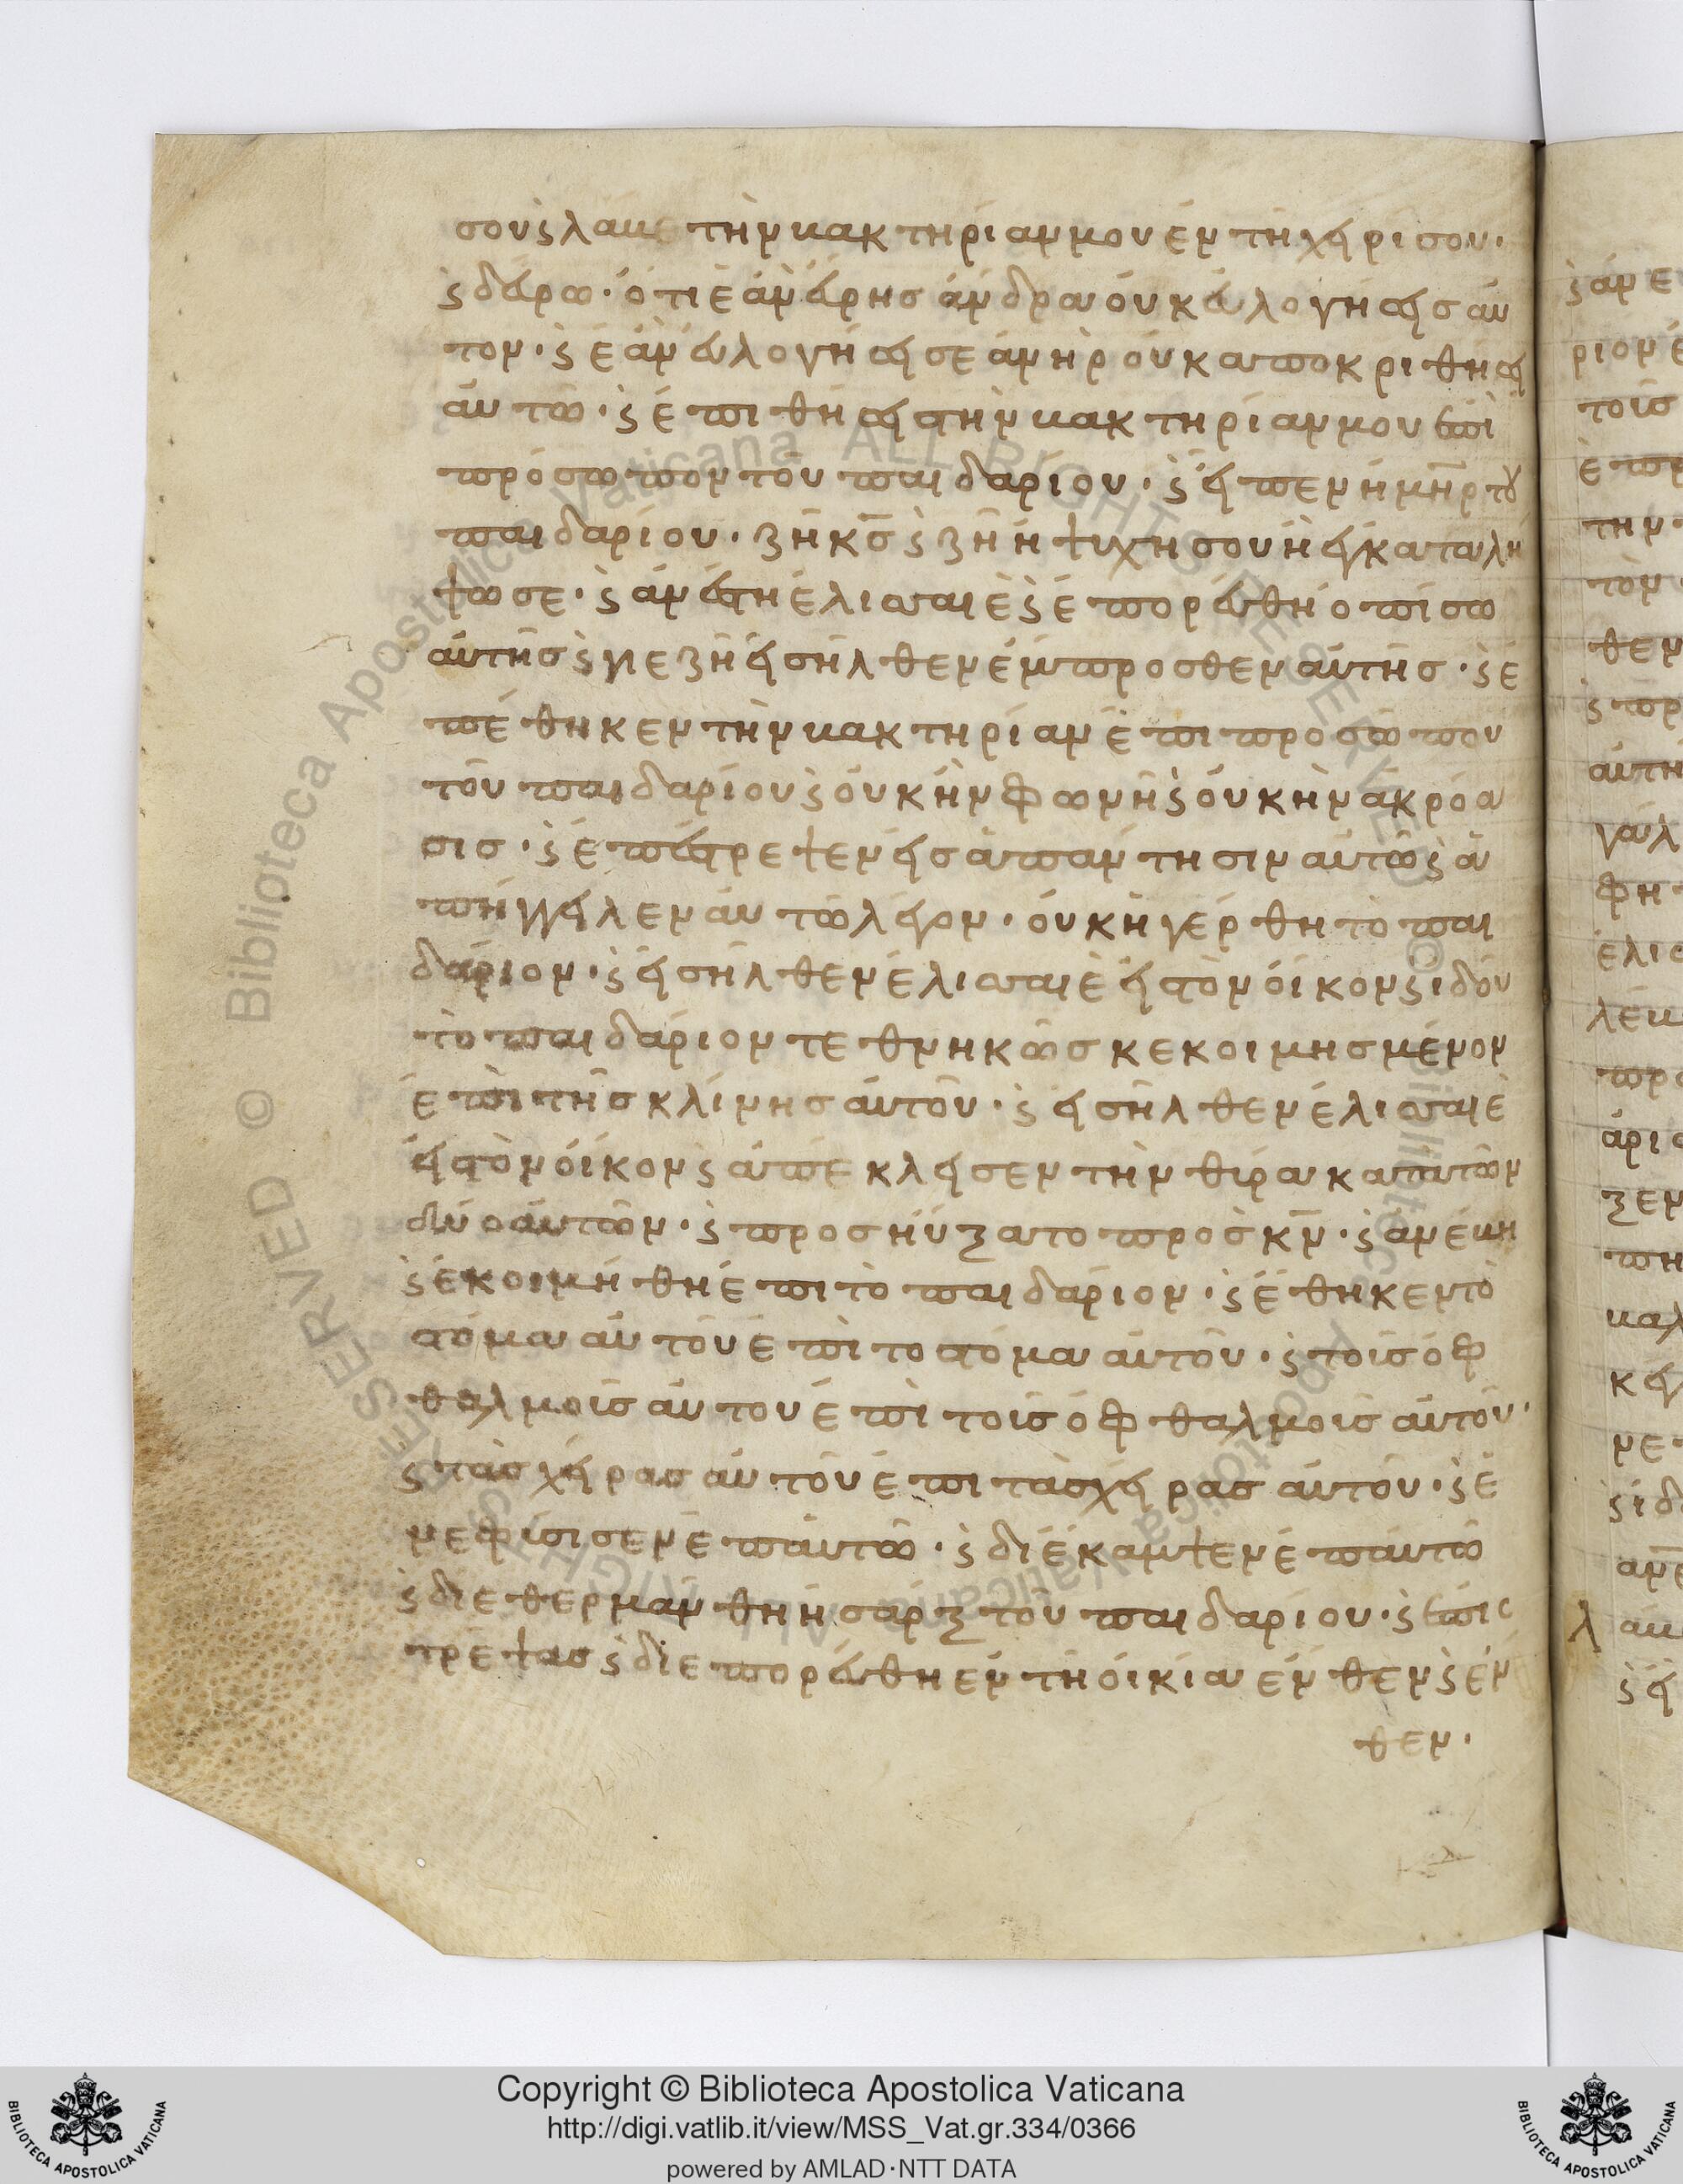 σου ϗ λάβε τὴν βακτηρίαν μου ἐν τῆ χειρί σου·
ϗ δεύρω· ὅτι ἐὰν εὕρης ἄνδρα οὐκ εὐλογήσεισ αὐ
τον· ϗ ἐὰν εὐλογήσει σε ἀνὴρ οὐκ αποκριθήσει
αὐτῶ· ϗ ἐπιθήσει τὴν βακτηρίαν μου ἐπὶ
πρόσωπον τοῦ παιδαρίου· ϗ εἶπεν ἡ μῆρ τοῦ
παιδαρίου· ζῆ κσ ϗ ζῆ ἡ ψυχη σου ἢ εἰ ἐγκαταλεί
ψω σε· ϗ ἀνέστη ἐλισσαιὲ ϗ ἐπορεύθη ὀπίσω
αὐτῆσ ϗ γιεζῆ εἰσῆλθεν ἔμπροσθεν αὐτῆσ· ϗ ἐ
πέθηκεν τὴν βακτηρίαν ἐπι προσώπου
τοῦ παιδαρίου ϗ οὐκ ἦν φωνὴ ϗ οὐκ ἦν ἀκρόα
σισ· ϗ ἐπέστρεψεν εἰσ ἀπαντησιν αὐτῶ ϗ ἀ
πήγγειλεν αὐτῶ λέγον· οὐκ ἠγέρθη τὸ παι
δάριον· ϗ εἰσῆλθεν ἐλισσαιὲ εἰσ τὸν οἶκον ϗ ιδοὺ
τὸ παιδάριον τεθνηκῶσ κεκοιμησμένον
ἐπὶ τῆσ κλίνησ αὐτοῦ· ϗ εἰσῆλθεν ἐλισσαιὲ
εἰσ τὸν οἶκον ϗ ἀπέκλεισεν τὴν θύρα κατα τῶν
δύο αὐτῶν· ϗ προσηύξατο προσ κν· ϗ ἀνέβη
ϗ ἐκοιμήθη ἐπι τὸ παιδάριον· ϗ ἔθηκεν τὸ
στόμα αὐτοῦ ἐπὶ το στόμα αὐτοῦ· ϗ τοῖσ ὀφ
θαλμοῖσ αὐτου ἐπὶ τοῖσ ὀφθαλμοισ αὐτοῦ·
ϗ τὰσ χεῖρασ αὐτοῦ ἐπι τὰσ χεῖρασ αὐτοῦ· ϗ ἐ
νεφύσισεν ἐπ αυτῶ· ϗ διέκαμψεν ἐπ αυτῶ
ϗ διεθερμάνθη ἡ σάρξ τοῦ παιδαρίου· ϗ ἐπισ
τρέψασ ϗ διεπορεύθη ἐν τῆ οἰκία ἔνθεν ϗ ἔν
θεν·
ϗ ἀνε
ριον ἐ
τοῖσ
ἐπρ
την
τὸν
θεν
ϗ πρ
αὐτῆ
γαλ
φη
ἐλισ
λέω
προ
ἀρι
ξεν
πη
καλ
κει
νε
ϗ ἰδ
λ
ϗ εἰ
Copyright © Biblioteca Apostolica Vaticana
http://digi.vatlib.it/view/MSS_Vat.gr.334/0366
powered by AMLAD·NTT DATA